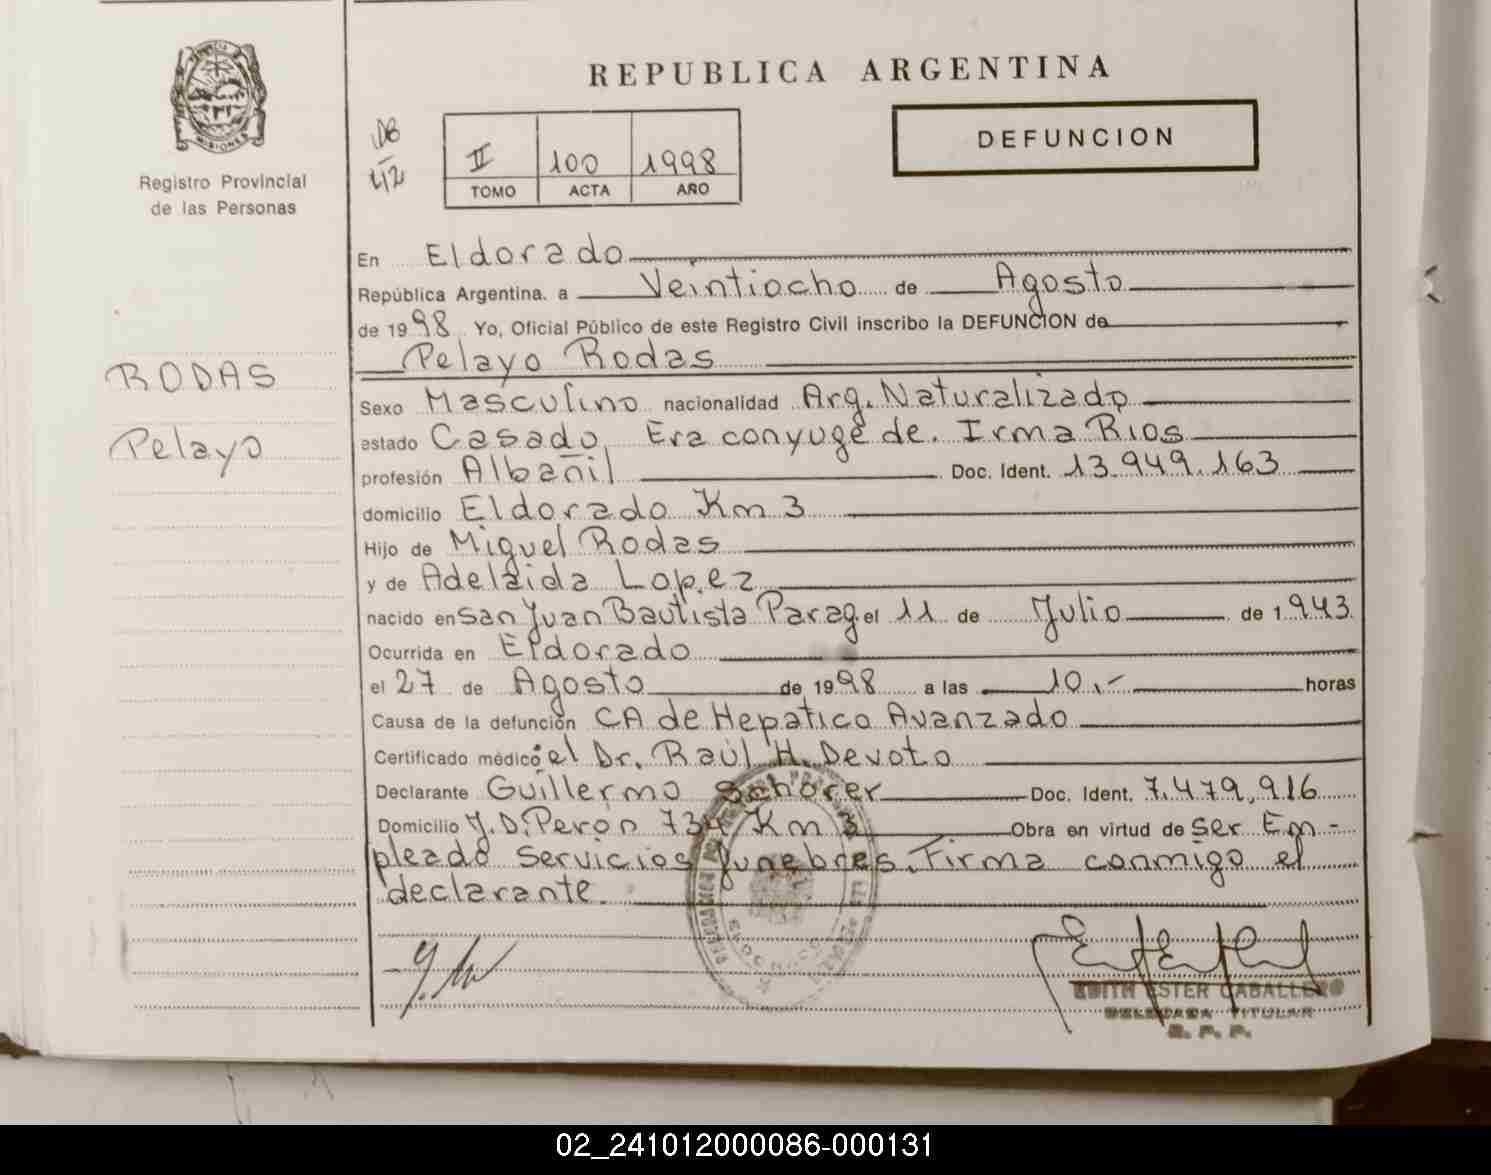 REPUBLICA ARGENTINA
MISIONES
Registro Provincial
de las Personas
DB
II 100 1998
TOMO ACTA AÑO
DEFUNCION
En Eldorado
República Argentina. a Veintiocho de Agosto
de 1998 Yo, Oficial Público de este Registro Civil inscribo la DEFUNCION de
Pelayo Rodas
RODAS
Pelayo
Sexo Masculino nacionalidad Arg. Naturalizado
estado Casado, Era conyuge de. Irma Rios
profesión Albañil Doc. Ident. 13.949.163
domicilio Eldorado Km 3
Hijo de Miguel Rodas
y de Adelaida Lopez
nacido en San Juan Bautista Parag. el 11 de Julio de 1.943
Ocurrida en Eldorado
el 27 de Agosto de 1998 a las 10.- horas
Causa de la defunción CA de Hepatico Avanzado
Certificado médico: el Dr. Raúl H. Devoto
Declarante Guillermo Schorer Doc. Ident. 7.479.916
Domicilio J.D. Peron 734 Km 3 Obra en virtud de ser Em-
pleado Servicios funebres. Firma conmigo el
declarante.
EDITH ESTER CABALLERO
DELEGADA TITULAR
R. P. P.
02_241012000086-000131